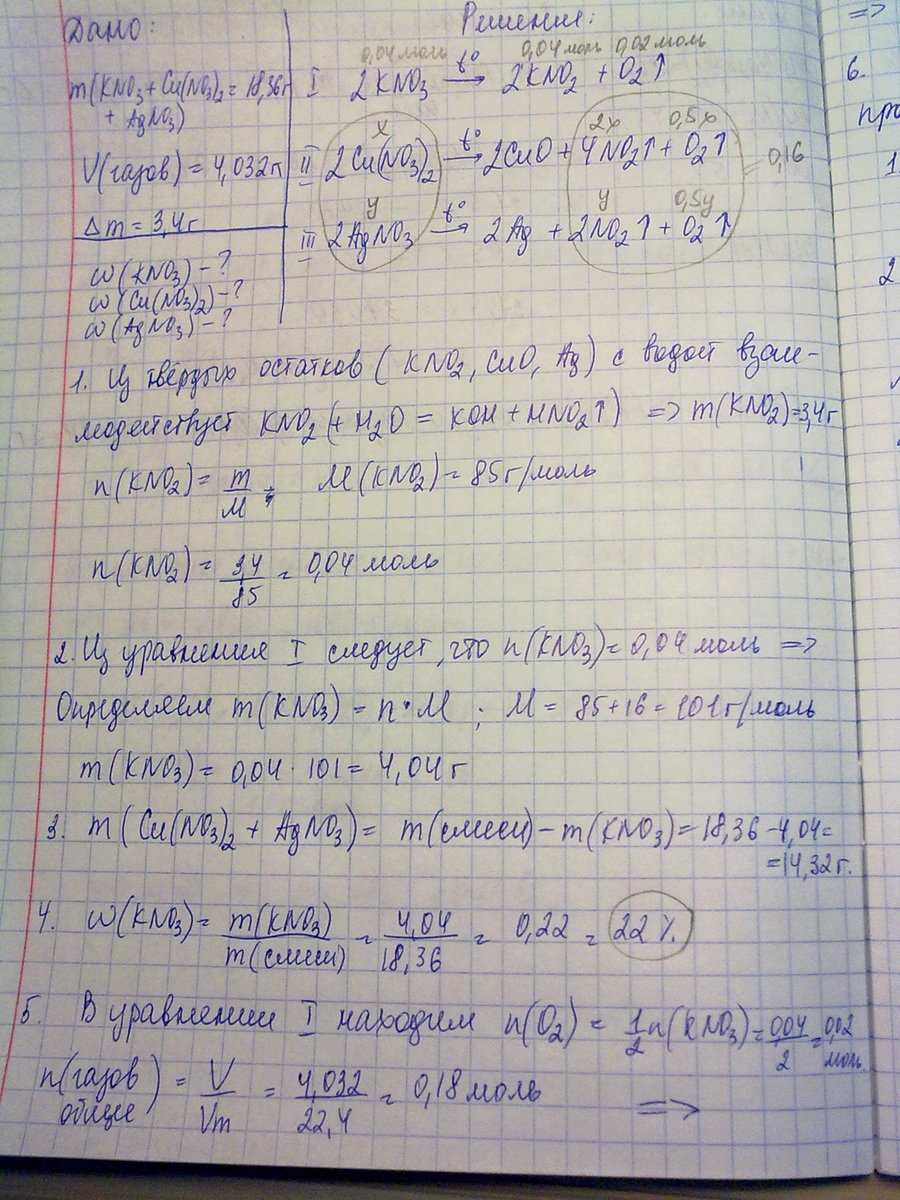 Дано:
m(KNO₃ + Cu(NO₃)₂ = 18,36г
+ AgNO₃)
V(газов) = 4,032 г
Δm = 3,4г
ω(KNO₃) - ?
ω(Cu(NO₃)₂) - ?
ω(AgNO₃) - ?
Решение:
0,04 моль 0,04 моль 0,02 моль
I 2KNO₃ t° → 2KNO₂ + O₂↑
x 2x 0,5x
II 2Cu(NO₃)₂ t° → 2CuO + 4NO₂↑ + O₂↑ = 0,16
y y 0,5y
III 2AgNO₃ t° → 2Ag + 2NO₂↑ + O₂↑
1. Из твёрдых остатков (KNO₂, CuO, Ag) с водой взаи-
модействует KNO₂ (+ H₂O = KOH + HNO₂↑) => m(KNO₂) = 3,4г
n(KNO₂) = m/M ; M(KNO₂) = 85 г/моль
n(KNO₂) = 3,4/85 = 0,04 моль
2. Из уравнения I следует, что n(KNO₃) = 0,04 моль =>
Определяем m(KNO₃) = n·M ; M = 85 + 16 = 101 г/моль
m(KNO₃) = 0,04 · 101 = 4,04 г
3. m(Cu(NO₃)₂ + AgNO₃) = m(смеси) - m(KNO₃) = 18,36 - 4,04 =
= 14,32 г.
4. ω(KNO₃) = m(KNO₃)/m(смеси) = 4,04/18,36 = 0,22 = 22 %.
5. В уравнении I находим n(O₂) = 1/2 n(KNO₃) = 0,04/2 = 0,02 моль
n(газов общие) = V/Vm = 4,032/22,4 = 0,18 моль =>
=>
6.
про
1.
2